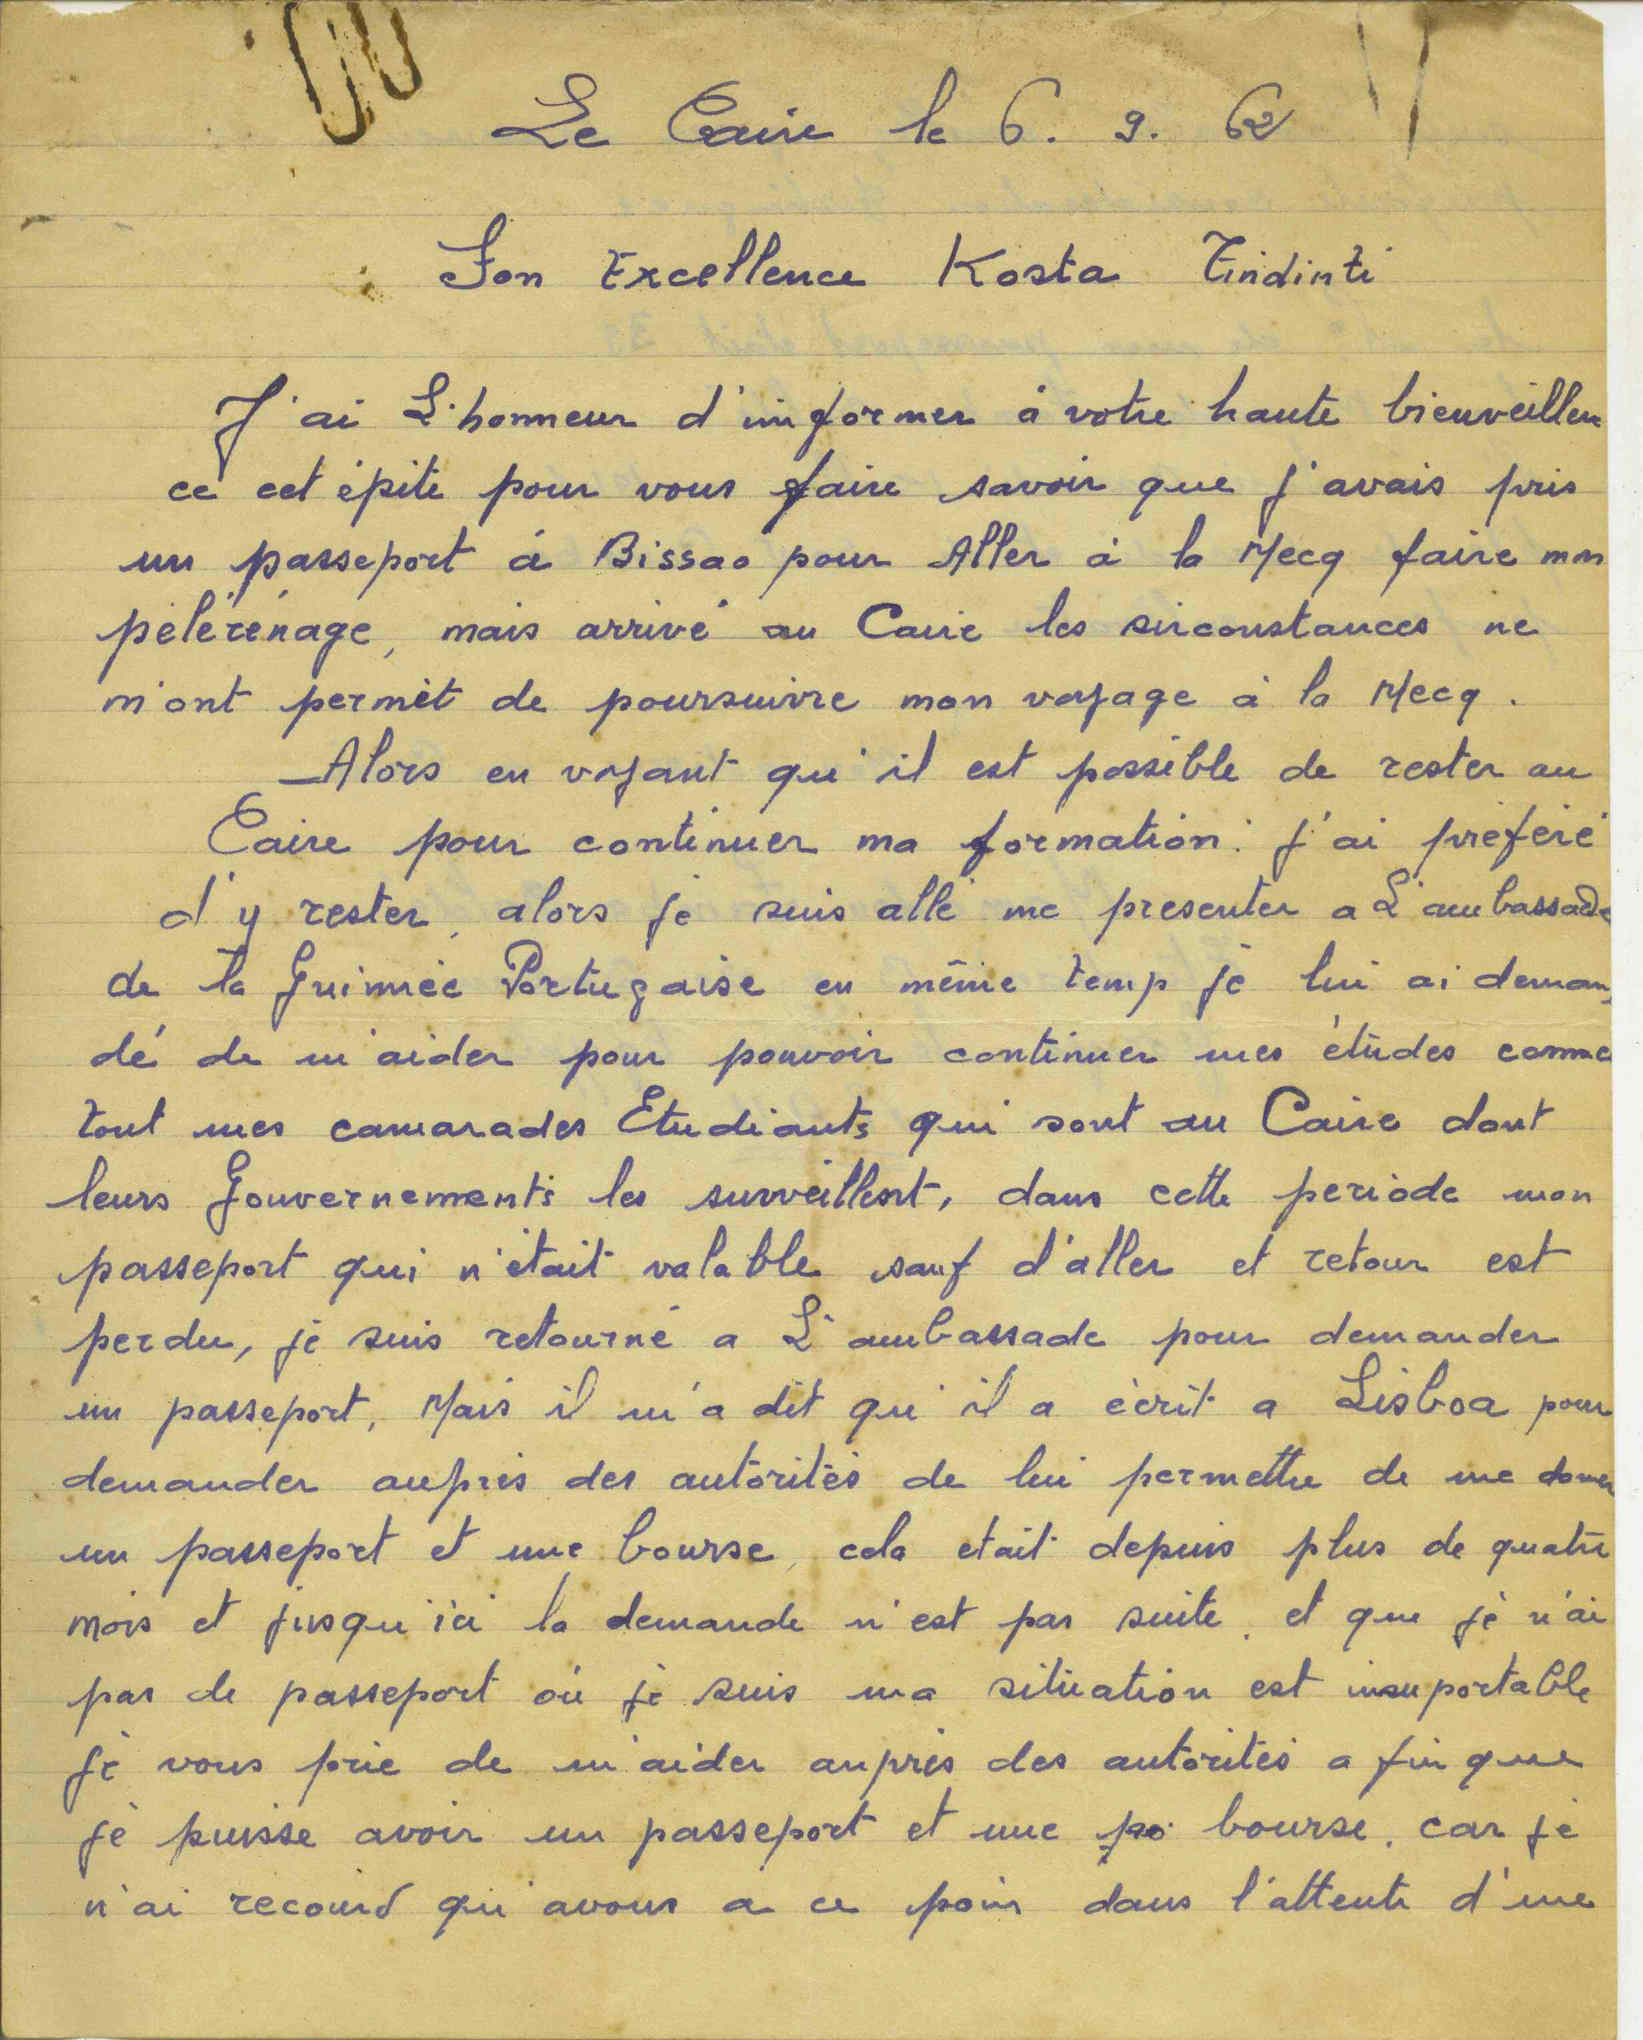 Le Caire le 6. 9. 62
Son Excellence Kosta Tindinti
J'ai L'honneur d'informer à votre haute bienveillen
ce cet épite pour vous faire savoir que j'avais pris
un passeport à Bissao pour Aller à la Mecq faire mon
pélérénage, mais arrivé au Caire les sirconstances ne
m'ont permèt de poursuivre mon voyage à la Mecq.
Alors en voyant qu'il est possible de rester au
Caire pour continuer ma formation. j'ai préféré
d'y rester, alors je suis allé me presenter a L'ambassade
de la Guinnée Portugaise en même temp je lui ai deman
dé de m'aider pour pouvoir continuer mes études comme
tout mes camarades Etudiants qui sont au Caire dont
leurs Gouvernements les surveillent, dans cette periode mon
passeport qui n'était valable sauf d'aller et retour est
perdu, je suis retourné a L'ambassade pour demander
un passeport, Mais il m'a dit qu'il a écrit a Lisboa pour
demander auprès des autorités de lui permettre de me donner
un passeport et une bourse, cela etait depuis plus de quatre
mois et jusqu'ici la demande n'est pas suite. et que je n'ai
pas de passeport où je suis ma situation est insuportable
je vous prie de m'aider auprès des autorités a fin que
je puisse avoir un passeport et une po bourse. car je
n'ai recourd qu'avous a ce poin dans l'attente d'une